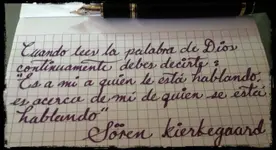 Cuando lees la palabra de Dios
continuamente debes decirte:
"Es a mi a quien le está hablando;
es acerca de mí de quien se está
hablando"
Sören Kierkegaard